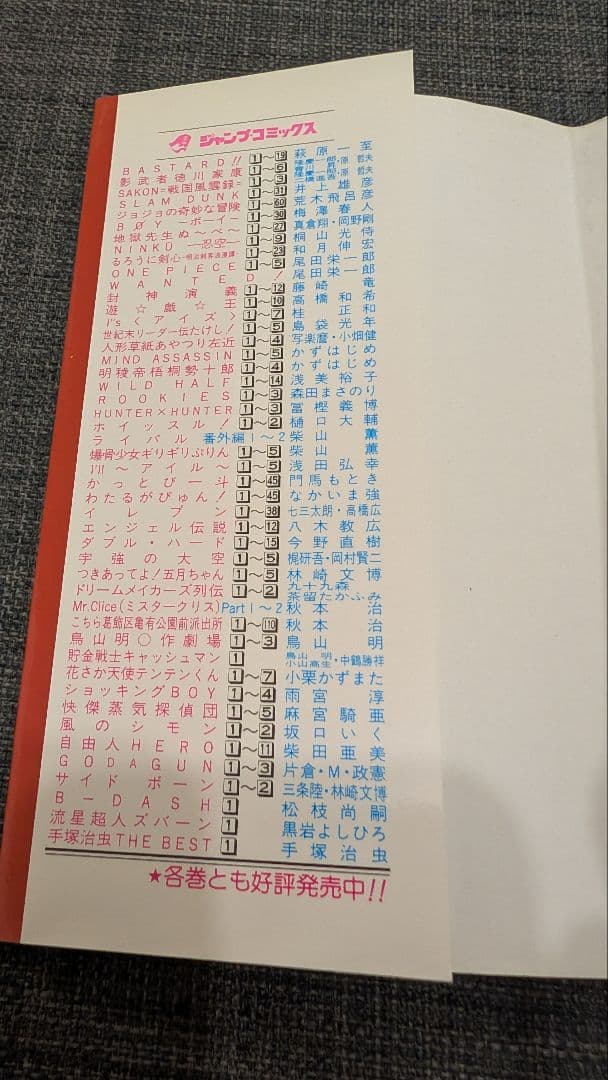 ジャンプ・コミックス
BASTARD!! 1～19 萩原一至
影武者徳川家康 1～6 隆慶一郎・原哲夫 會川昇
SAKON=戦国風雲録= 1～3 隆慶一郎・原哲夫 二橋進吾
SLAM DUNK 1～31 井上雄彦
ジョジョの奇妙な冒険 1～60 荒木飛呂彦
BØY ―ボーイ― 1～30 梅澤春人
地獄先生ぬ～べ～ 1～27 真倉翔・岡野剛
NINKU ―忍空― 1～9 桐山光侍
るろうに剣心-明治剣客浪漫譚- 1～23 和月伸宏
ONE PIECE 1～5 尾田栄一郎
WANTED! 尾田栄一郎
封神演義 1～12 藤崎竜
遊☆戯☆王 1～10 高橋和希
I"s<アイズ> 1～7 桂正和
世紀末リーダー伝たけし! 1～5 島袋光年
人形草紙あやつり左近 1～4 写楽麿・小畑健
MIND ASSASSIN 1～5 かずはじめ
明稜帝梧桐勢十郎 1～4 かずはじめ
WILD HALF 1～14 浅美裕子
ROOKIES 1～3 森田まさのり
HUNTER×HUNTER 1～3 冨樫義博
ホイッスル! 1～2 樋口大輔
ライバル 番外編1～2 柴山薫
爆骨少女ギリギリぷりん 1～5 柴山薫
I'll～アイル～ 1～5 浅田弘幸
かっとび一斗 1～45 門馬もとき
わたるがぴゅん! 1～45 なかいま強
イレブン 1～38 七三太朗・高橋広
エンジェル伝説 1～12 八木教広
ダブル・ハード 1～15 今野直樹
宇強の大空 1～5 梶研吾・岡村賢二
つきあってよ!五月ちゃん 1～5 林崎文博
ドリームメイカーズ列伝 1～2 九十九森 茶留たかふみ
Mr.Clice(ミスタークリス) Part 1～2 秋本治
こちら葛飾区亀有公園前派出所 1～110 秋本治
鳥山明○作劇場 1～3 鳥山明
貯金戦士キャッシュマン 1 鳥山明 小山高生・中鶴勝祥
花さか天使テンテンくん 1～7 小栗かずまた
ショッキングBOY 1～4 雨宮淳
快傑蒸気探偵団 1～5 麻宮騎亜
風のシモン 1～2 坂口いく
自由人HERO 1～11 柴田亜美
GODAGUN 1～3 片倉・M・政憲
サイドボーン 1～2 三条陸・林崎文博
B-DASH 1 松枝尚嗣
流星超人ズバーン 1 黒岩よしひろ
手塚治虫THE BEST 1 手塚治虫
★各巻とも好評発売中!!